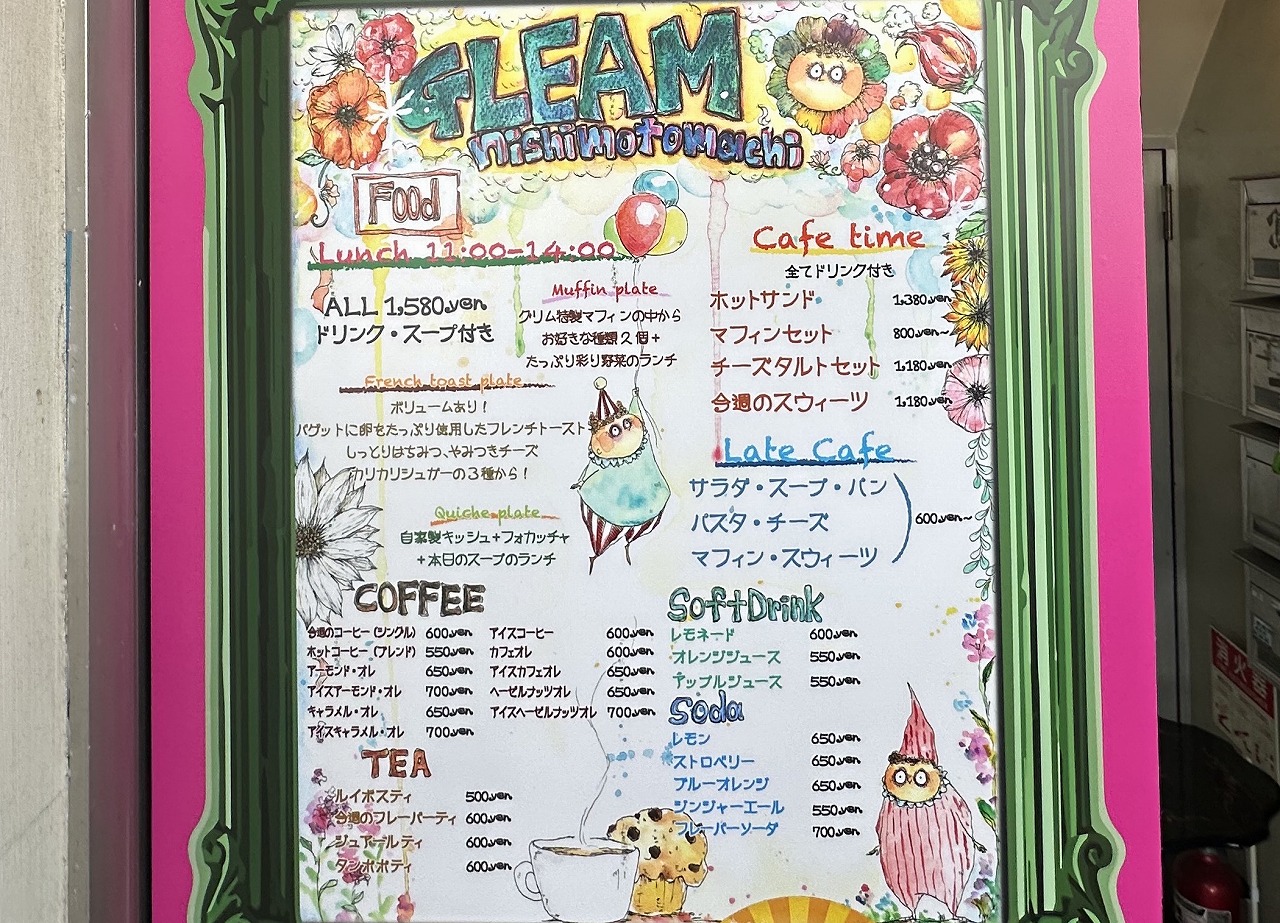 GLEAM
nishimotomachi
Food
Lunch 11:00-14:00
ALL 1,580yen
ドリンク・スープ付き
Muffin plate
グリム特製マフィンの中から
お好きな種類2個+
たっぷり彩り野菜のランチ
French toast plate
ボリュームあり!
バゲットに卵をたっぷり使用したフレンチトースト
しっとりはちみつ、やみつきチーズ
カリカリシュガーの3種から!
Quiche plate
自家製キッシュ+フォカッチャ
+本日のスープのランチ
Cafe time
全てドリンク付き
ホットサンド 1,380yen
マフィンセット 800yen~
チーズタルトセット 1,180yen
今週のスウィーツ 1,180yen
Late Cafe
サラダ・スープ・パン
パスタ・チーズ 600yen~
マフィン・スウィーツ
COFFEE
今週のコーヒー(シングル) 600yen
ホットコーヒー(ブレンド) 550yen
アーモンド・オレ 650yen
アイスアーモンド・オレ 700yen
キャラメル・オレ 650yen
アイスキャラメル・オレ 700yen
アイスコーヒー 600yen
カフェオレ 600yen
アイスカフェオレ 650yen
ヘーゼルナッツオレ 650yen
アイスヘーゼルナッツオレ 700yen
TEA
ルイボスティ 500yen
今週のフレーバーティ 600yen
ジュアールティ 600yen
タンポポティ 600yen
SoftDrink
レモネード 600yen
オレンジジュース 550yen
アップルジュース 550yen
Soda
レモン 650yen
ストロベリー 650yen
ブルーオレンジ 650yen
ジンジャーエール 550yen
フレーバーソーダ 700yen
消火器